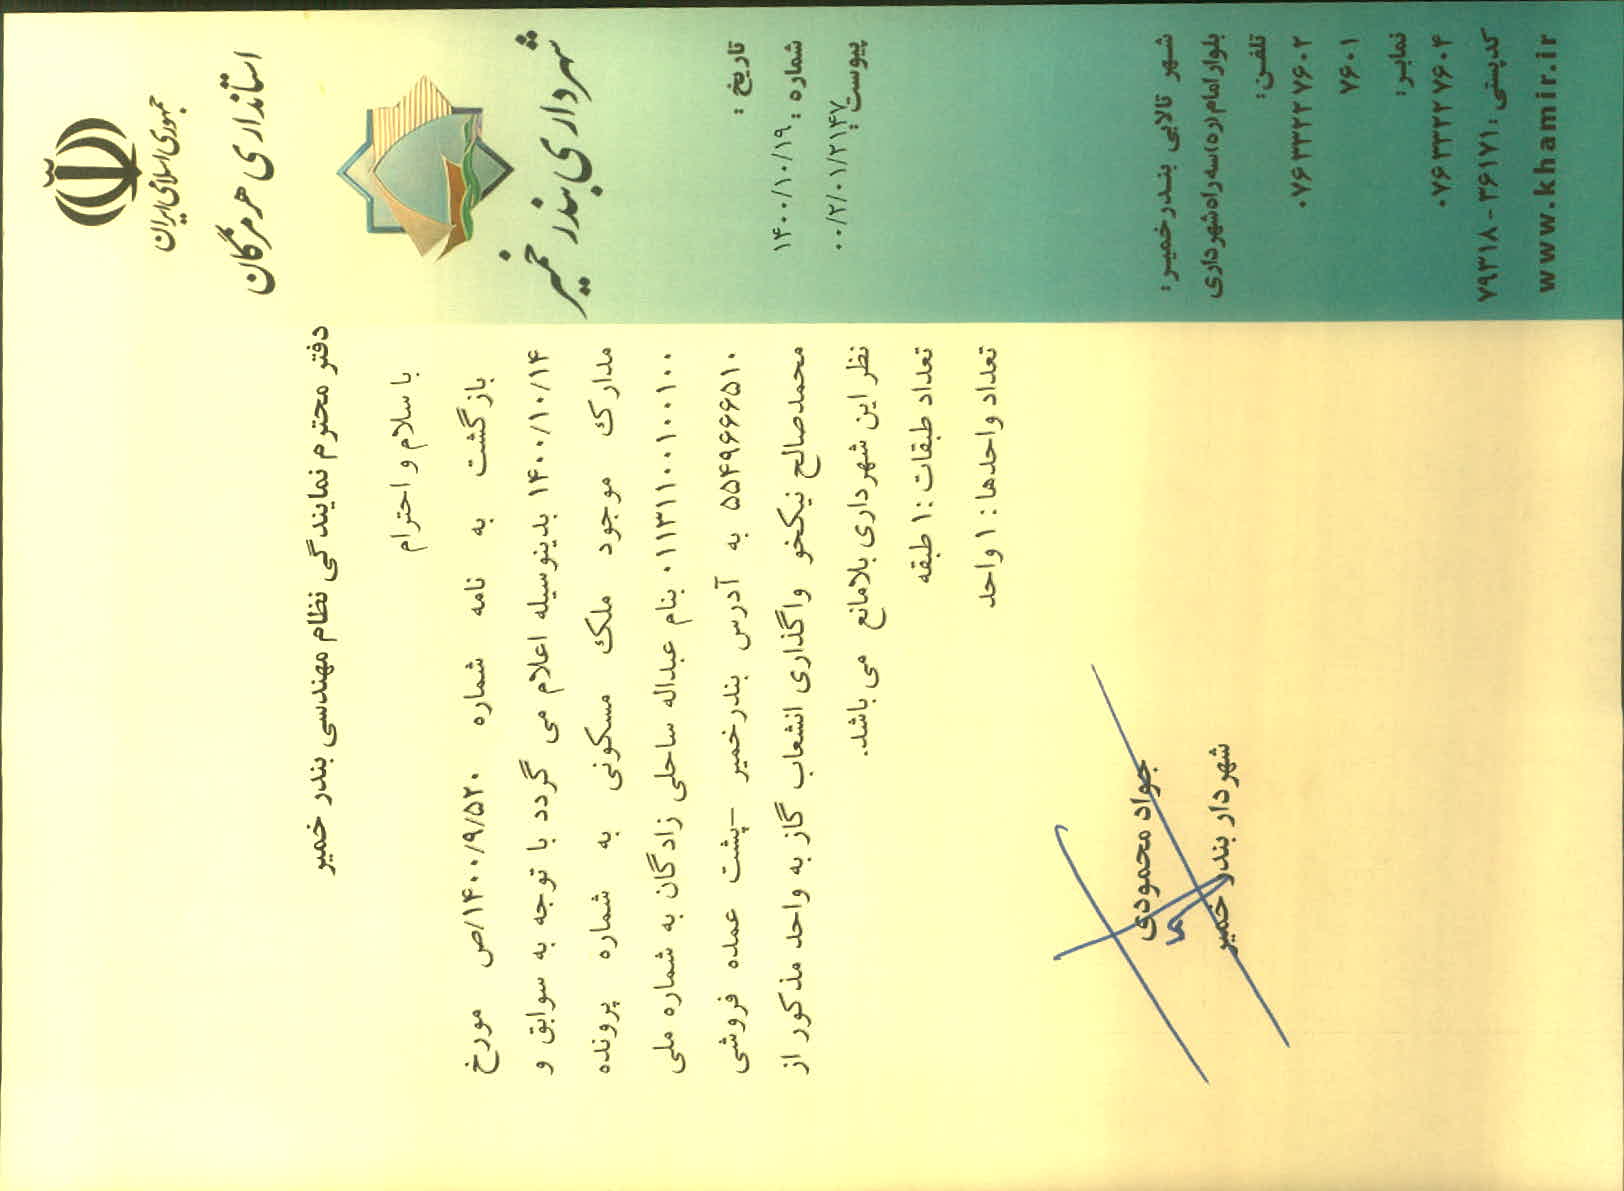 جمهوری اسلامی ایران
استانداری هرمزگان
شهرداری بندر خمیر
تاریخ :
شماره : ۱۴۰۰/۱۰/۱۹
پیوست: ۰۰/۲/۰۱/۲۱۴۷
شهر تالابی بندرخمیر:
بلوار امام(ره)سه راه شهرداری
تلفن:
۰۷۶۳۳۲۲۷۶۰۲
۷۶۰۱
نمابر:
۰۷۶۳۳۲۲۷۶۰۴
کدپستی: ۳۶۱۷۱ - ۷۹۳۱۸
www.khamir.ir
دفتر محترم نمایندگی نظام مهندسی بندر خمیر
با سلام و احترام
بازگشت به نامه شماره ۱۴۰۰/۹/۵۲۰/ص مورخ
۱۴۰۰/۱۰/۱۴ بدینوسیله اعلام می گردد با توجه به سوابق و
مدارک موجود ملک مسکونی به شماره پرونده
۰۱۱۳۱۱۰۰۱۰۰۱۰۰ بنام عبداله ساحلی زادگان به شماره ملی
۵۵۴۹۶۶۶۵۱۰ به آدرس بندرخمیر –پشت عمده فروشی
محمدصالح نیکخو واگذاری انشعاب گاز به واحد مذکور از
نظر این شهرداری بلامانع می باشد.
تعداد طبقات :۱ طبقه
تعداد واحدها : ۱ واحد
جواد محمودی
شهردار بندر خمیر